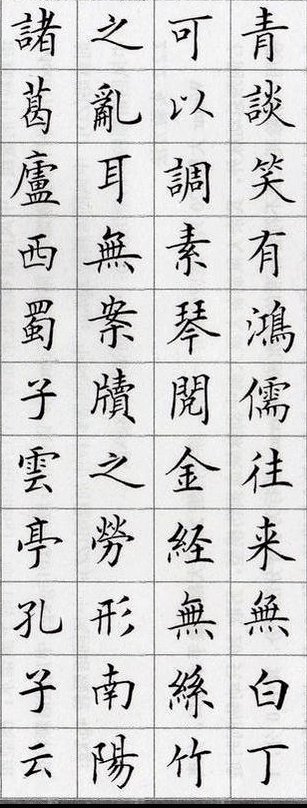 青談笑有鴻儒往来無白丁
可以調素琴閱金経無絲竹
之亂耳無案牘之勞形南陽
諸葛廬西蜀子雲亭孔子云